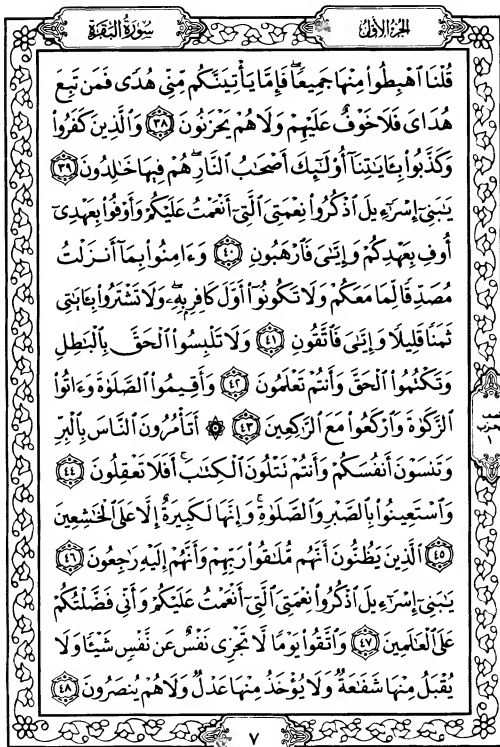 سُورَةُ البَقَرَةِ
الجُزءُ الأوَّلُ
قُلْنَا ٱهْبِطُوا۟ مِنْهَا جَمِيعًا ۖ فَإِمَّا يَأْتِيَنَّكُم مِّنِّى هُدًى فَمَن تَبِعَ
هُدَاىَ فَلَا خَوْفٌ عَلَيْهِمْ وَلَا هُمْ يَحْزَنُونَ ٣٨ وَٱلَّذِينَ كَفَرُوا۟
وَكَذَّبُوا۟ بِـَٔايَـٰتِنَآ أُو۟لَـٰٓئِكَ أَصْحَـٰبُ ٱلنَّارِ ۖ هُمْ فِيهَا خَـٰلِدُونَ ٣٩
يَـٰبَنِىٓ إِسْرَٰٓءِيلَ ٱذْكُرُوا۟ نِعْمَتِىَ ٱلَّتِىٓ أَنْعَمْتُ عَلَيْكُمْ وَأَوْفُوا۟ بِعَهْدِىٓ
أُوفِ بِعَهْدِكُمْ وَإِيَّـٰىَ فَٱرْهَبُونِ ٤٠ وَءَامِنُوا۟ بِمَآ أَنزَلْتُ
مُصَدِّقًا لِّمَا مَعَكُمْ وَلَا تَكُونُوٓا۟ أَوَّلَ كَافِرٍۭ بِهِۦ ۖ وَلَا تَشْتَرُوا۟ بِـَٔايَـٰتِى
ثَمَنًا قَلِيلًا وَإِيَّـٰىَ فَٱتَّقُونِ ٤١ وَلَا تَلْبِسُوا۟ ٱلْحَقَّ بِٱلْبَـٰطِلِ
وَتَكْتُمُوا۟ ٱلْحَقَّ وَأَنتُمْ تَعْلَمُونَ ٤٢ وَأَقِيمُوا۟ ٱلصَّلَوٰةَ وَءَاتُوا۟
ٱلزَّكَوٰةَ وَٱرْكَعُوا۟ مَعَ ٱلرَّٰكِعِينَ ٤٣ ۞ أَتَأْمُرُونَ ٱلنَّاسَ بِٱلْبِرِّ
وَتَنسَوْنَ أَنفُسَكُمْ وَأَنتُمْ تَتْلُونَ ٱلْكِتَـٰبَ ۚ أَفَلَا تَعْقِلُونَ ٤٤
وَٱسْتَعِينُوا۟ بِٱلصَّبْرِ وَٱلصَّلَوٰةِ ۚ وَإِنَّهَا لَكَبِيرَةٌ إِلَّا عَلَى ٱلْخَـٰشِعِينَ
٤٥ ٱلَّذِينَ يَظُنُّونَ أَنَّهُم مُّلَـٰقُوا۟ رَبِّهِمْ وَأَنَّهُمْ إِلَيْهِ رَٰجِعُونَ ٤٦
يَـٰبَنِىٓ إِسْرَٰٓءِيلَ ٱذْكُرُوا۟ نِعْمَتِىَ ٱلَّتِىٓ أَنْعَمْتُ عَلَيْكُمْ وَأَنِّى فَضَّلْتُكُمْ
عَلَى ٱلْعَـٰلَمِينَ ٤٧ وَٱتَّقُوا۟ يَوْمًا لَّا تَجْزِى نَفْسٌ عَن نَّفْسٍ شَيْـًٔا وَلَا
يُقْبَلُ مِنْهَا شَفَـٰعَةٌ وَلَا يُؤْخَذُ مِنْهَا عَدْلٌ وَلَا هُمْ يُنصَرُونَ ٤٨
٧